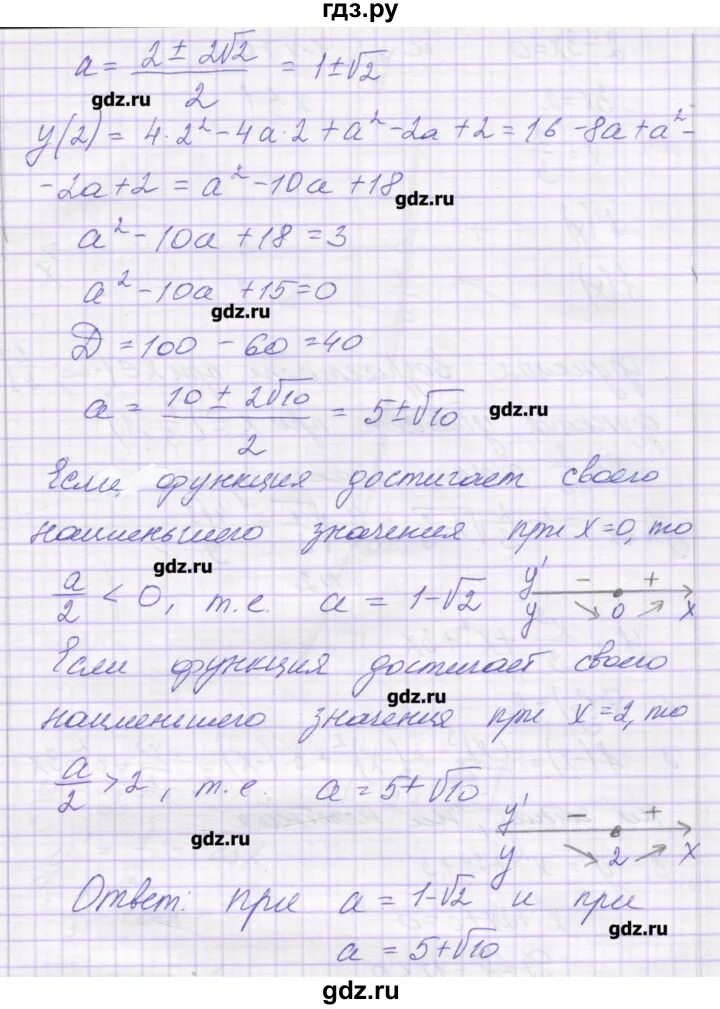 гдз.ру
a = (2 ± 2√2)/2 = 1 ± √2
gdz.ru
y(2) = 4·2² - 4a·2 + a² - 2a + 2 = 16 - 8a + a² -
- 2a + 2 = a² - 10a + 18
gdz.ru
a² - 10a + 18 = 3
a² - 10a + 15 = 0
gdz.ru
Д = 100 - 60 = 40
a = (10 ± 2√10)/2 = 5 ± √10
gdz.ru
Если функция достигает своего
наименьшего значения при x=0, то
gdz.ru
a/2 < 0, т.е. a = 1-√2
y' - +
y ↘ 0 ↗ x
Если функция достигает своего
gdz.ru
наименьшего значения при x=2, то
a/2 > 2, т.е. a = 5+√10
y' - +
y ↘ 2 ↗ x
gdz.ru
Ответ: при a = 1-√2 и при
gdz.ru
a = 5+√10
gdz.ru